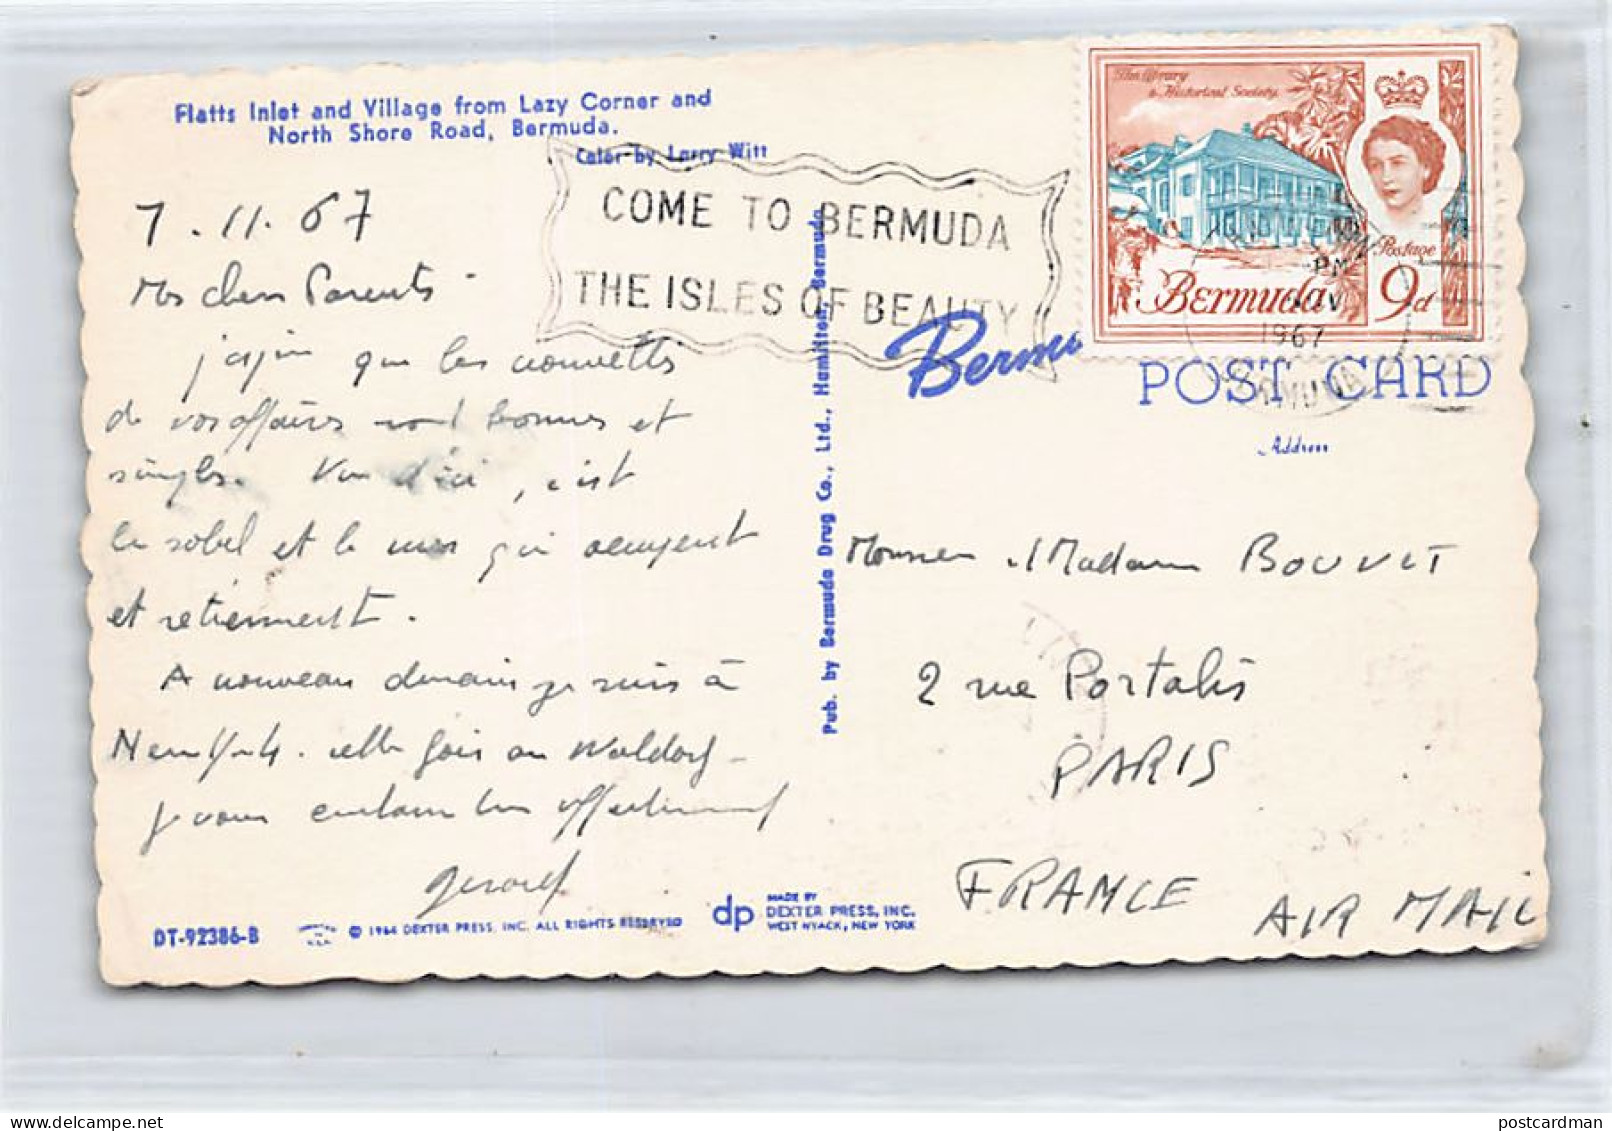 Flatts Inlet and Village from Lazy Corner and
North Shore Road, Bermuda.
Color by Larry Witt
COME TO BERMUDA
THE ISLES OF BEAUTY
The Library
& Historical Society
Postage
Bermuda 9d
PM
NOV
1967
BERMUDA
Bermu
POST CARD
Address
7.11.67
Mes chers Parents
j'espère que les nouvelles
de vos affaires sont bonnes et
simples. Vu d'ici, c'est
le soleil et la mer qui occupent
et retiennent.
A nouveau demain je suis à
New York. cette fois au Waldorf -
Je vous embrasse affectueusement
Gérard
Pub. by Bermuda Drug Co., Ltd., Hamilton, Bermuda
Monsieur et Madame BOUVET
2 rue Portalis
PARIS
FRANCE
AIR MAIL
DT-92386-B
© 1964 DEXTER PRESS, INC. ALL RIGHTS RESERVED
dp MADE BY
DEXTER PRESS, INC.
WEST NYACK, NEW YORK
postcardman